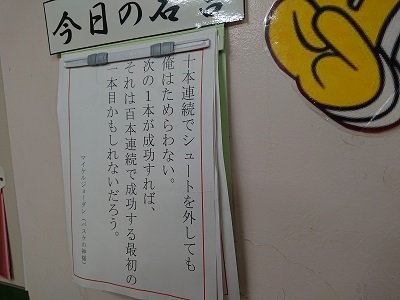 今日の名言
十本連続でシュートを外しても
俺はためらわない。
次の1本が成功すれば、
それは百本連続で成功する最初の
一本目かもしれないだろう。
マイケルジョーダン(バスケの神様)